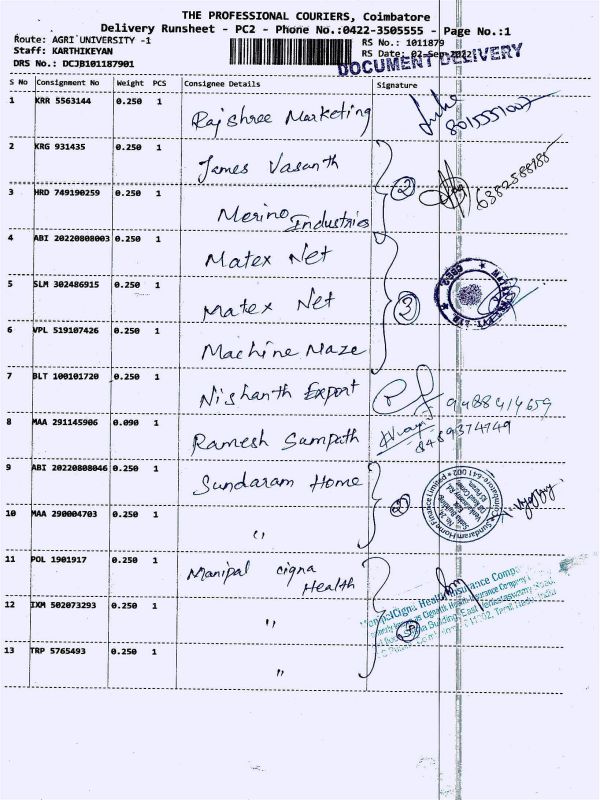 THE PROFESSIONAL COURIERS, Coimbatore
Delivery Runsheet - PC2 - Phone No.:0422-3505555 - Page No.:1
Route: AGRI UNIVERSITY -1
RS No.: 1011879
Staff: KARTHIKEYAN
RS Date: 02-Sep-2022
DRS No.: DCJB101187901
DOCUMENT DELIVERY
S No Consignment No Weight PCS Consignee Details Signature
1 KRR 5563144 0.250 1 Rajshree Marketing
2 KRG 931435 0.250 1 James Vasanth 2 6382588185
3 HRD 749190259 0.250 1 Merino Industries
4 ABI 20220808003 0.250 1 Matex Net
5 SLM 302486915 0.250 1 Matex Net 3
6 VPL 519107426 0.250 1 Machine Maze
7 BLT 100101720 0.250 1 Nishanth Export 9488414659
8 MAA 291145906 0.090 1 Ramesh Sampath 8489374749
9 ABI 20220808046 0.250 1 Sundaram Home 2
Sundaram Home Finance Limited
Coimbatore-641 002
10 MAA 290004703 0.250 1 "
11 POL 1901917 0.250 1 Manipal cigna Health
ManipalCigna Health Insurance Company
12 IXM 502073293 0.250 1 " 3
13 TRP 5765493 0.250 1 "